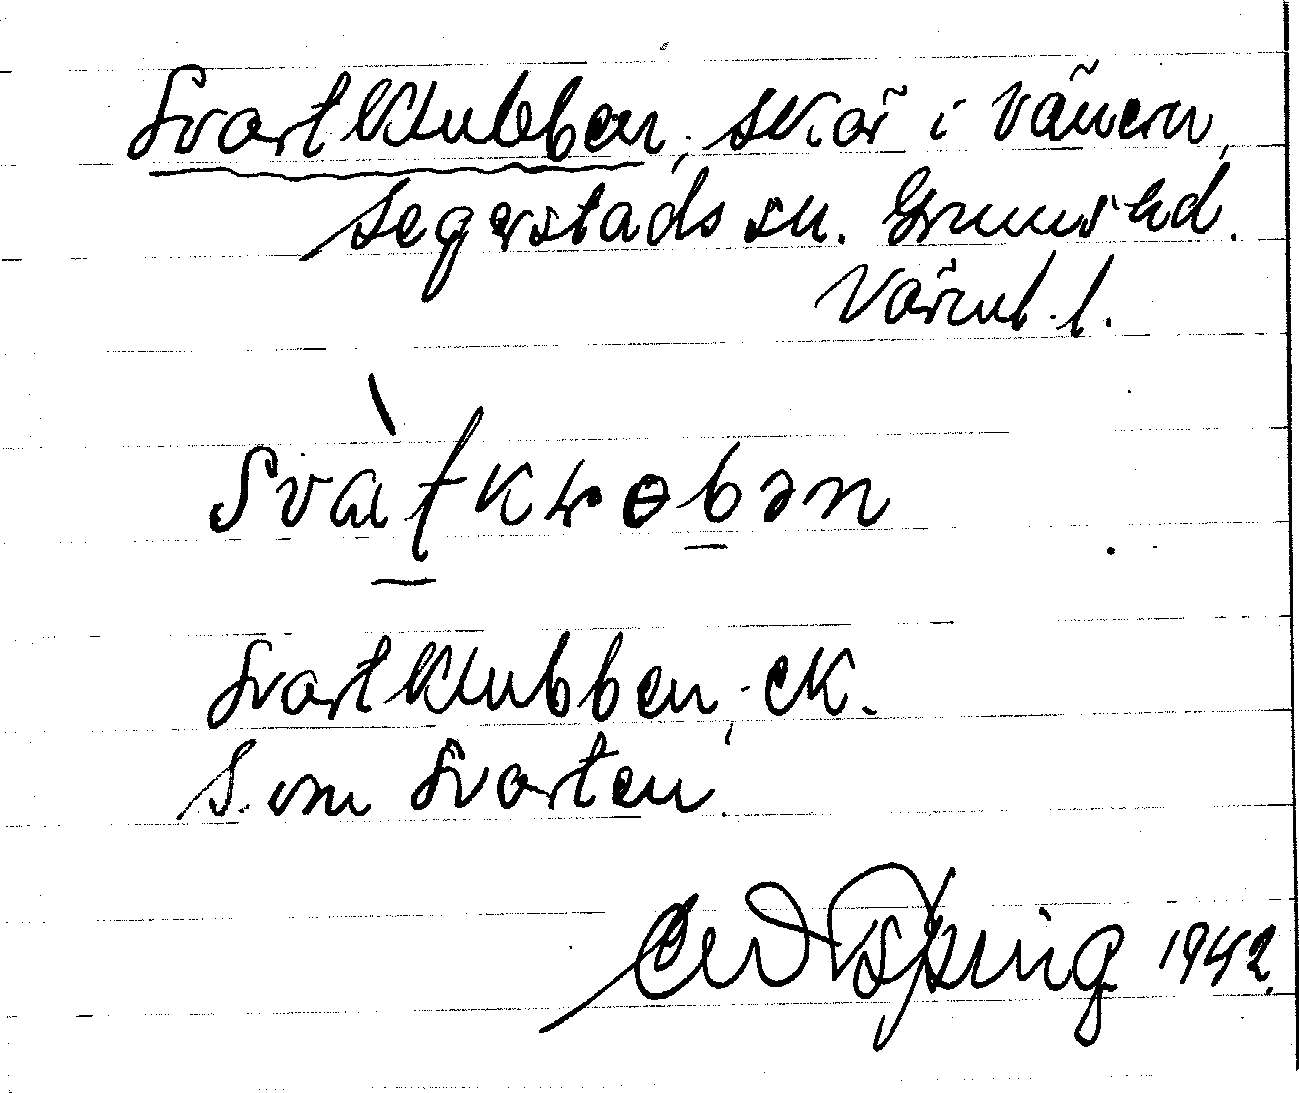 Svartklubben, skär i Vänern,
Segerstads sn. Grums hd.
Värml. l.
Svàtkɽɵbən
Svartklubben, ek.
S. om Svarten.
1942.